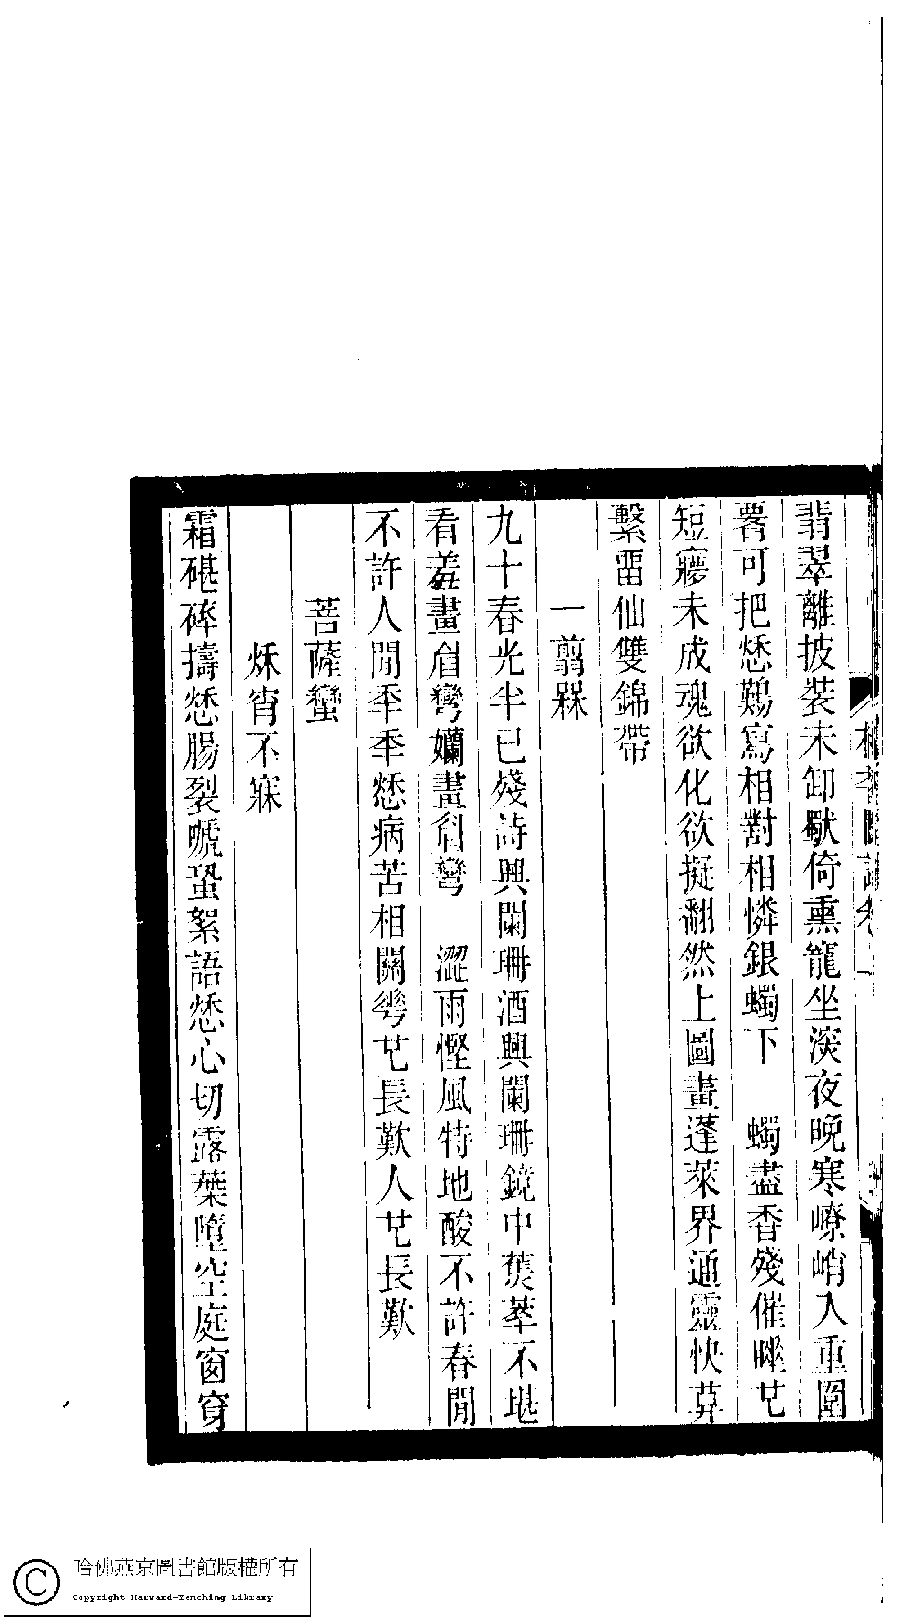 翡翠離披裝未卸獸倚熏籠坐淡夜晚寒嶚峭入重圍
畧可把愁難寫相對相憐銀蠋下　蠋盡香殘催睡也
短寱未成魂欲化欲擬翻然上圖畫蓬萊界通靈快莫
繫留仙雙錦帶
一翦梅
九十春光半已殘詩興闌珊酒興闌珊鏡中蕉萃不堪
看羞畫眉彎嬾畫眉彎　澀雨慳風特地酸不許春閒
不許人閒秊秊愁病苦相關花也長歎人也長歎
菩薩蠻
秌宵不寐
霜碪碎擣愁腸裂嘑蛩絮語愁心切露葉墮空庭窗穿
哈佛燕京圖書館版權所有
Copyright Harvard-Yenching Library